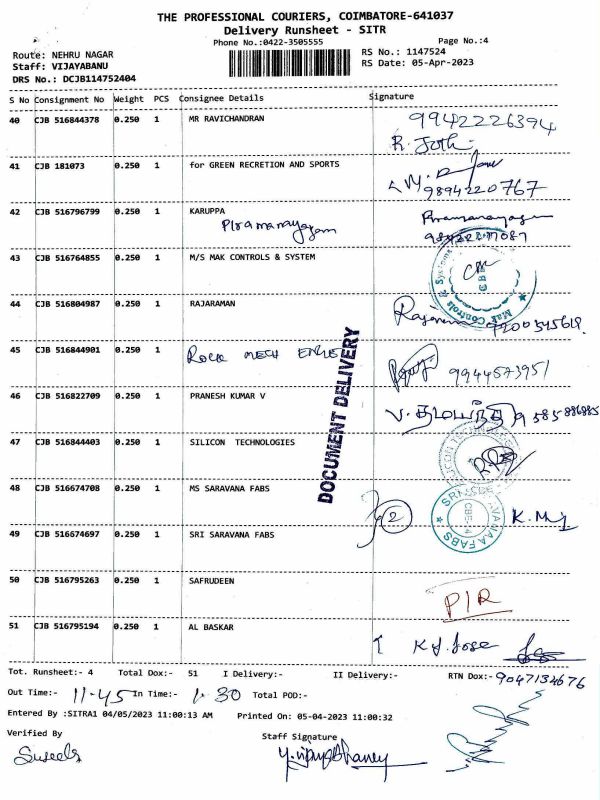 THE PROFESSIONAL COURIERS, COIMBATORE-641037
Delivery Runsheet - SITR
Phone No.:0422-3505555 Page No.:4
Route: NEHRU NAGAR RS No.: 1147524
Staff: VIJAYABANU RS Date: 05-Apr-2023
DRS No.: DCJB114752404
S No Consignment No Weight PCS Consignee Details Signature
40 CJB 516844378 0.250 1 MR RAVICHANDRAN 9942226394
R. Jothi
41 CJB 181073 0.250 1 for GREEN RECRETION AND SPORTS
9894220767
42 CJB 516796799 0.250 1 KARUPPA
Piramanayagam Piramanayagam
43 CJB 516764855 0.250 1 M/S MAK CONTROLS & SYSTEM
Mak Controls & Systems
CBE
44 CJB 516804987 0.250 1 RAJARAMAN
45 CJB 516844901 0.250 1 9944573951
46 CJB 516822709 0.250 1 PRANESH KUMAR V
47 CJB 516844403 0.250 1 SILICON TECHNOLOGIES
DOCUMENT DELIVERY
48 CJB 516674708 0.250 1 MS SARAVANA FABS 2
49 CJB 516674697 0.250 1 SRI SARAVANA FABS
50 CJB 516795263 0.250 1 SAFRUDEEN P/R
51 CJB 516795194 0.250 1 AL BASKAR K J. Jose
Tot. Runsheet:- 4 Total Dox:- 51 I Delivery:- II Delivery:- RTN Dox:- 9047134676
Out Time:- 11-45 In Time:- 1.30 Total POD:-
Entered By :SITRA1 04/05/2023 11:00:13 AM Printed On: 05-04-2023 11:00:32
Verified By Staff Signature
Suseela